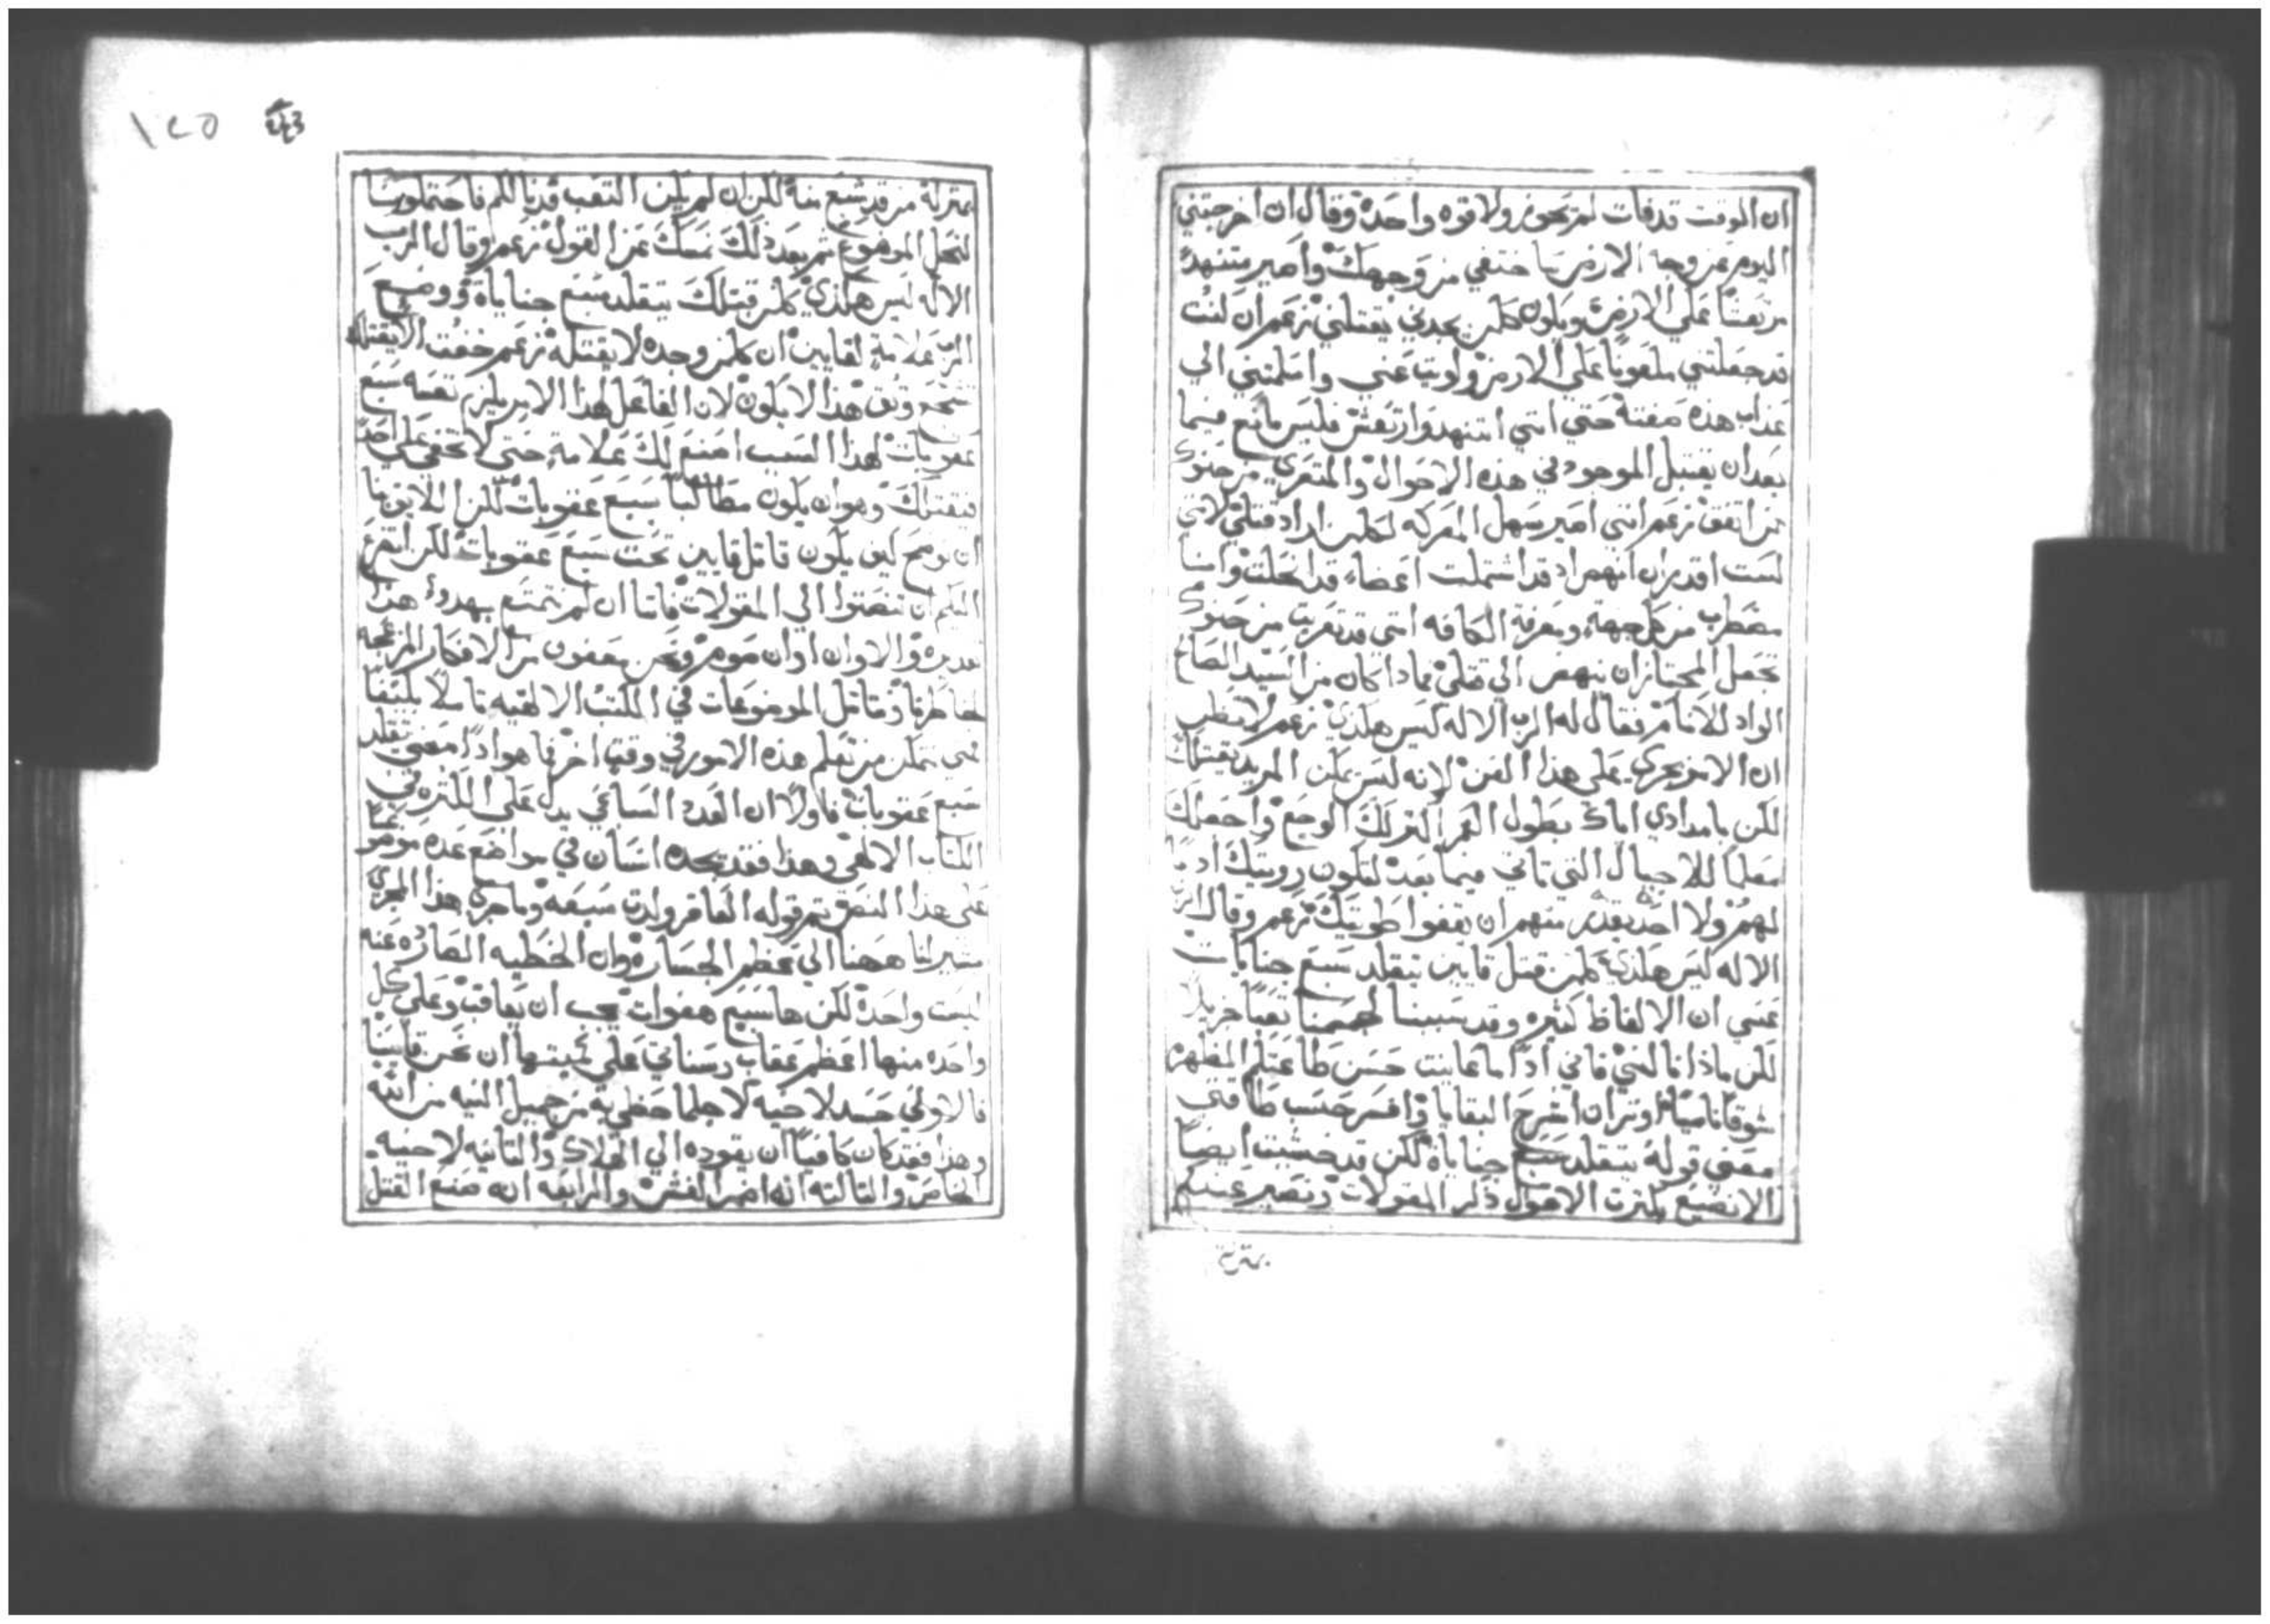 ان الوقت قد فات لم يحوز ولا قوه واحدة وقال ان اخرجتني
اليوم عن وجه الارض ساختفي من وجهك واصير متنهدًا
مرتعشًا علي الارض ويكون كلمن يجدني يقتلني زعم ان كنت
قد جعلتني ملعونًا علي الارض ولويت عني واسلمتني الي
عذاب هذه صفته حتي انني اتنهد وارتعش فليس مانع فيما
بعد ان يقتل الموجود في هذه الاحوال والمتعري من حنوك
من اتفق زعم انني اصير سهل المعركه لكلمن اراد قتلي لانني
لست اقدر ان انهض اذ قد اشتملت اعضاء قد انحلت وانا
مضطرب من كل جهة ومعرفة الكافه انني قد تعريت من حنوك
تجعل المجتازان ينهض الي قتلي فماذا كان من السيد الصالح
الواد للانام فقال له الرب الاله ليس هكذي زعم لا تظن
ان الامر يجري علي هذا الفن لانه ليس يمكن المريد يقتلك
لكن يامدادي اياك بطول العمر اكثر لك الوجع واجعلك
معلمًا للاجيال التي تاتي فيما بعد لتكون رويتك ادبًا
لهم ولا احد يقدر منهم ان يقفوا طريقتك زعم وقال الرب
الاله ليس هكذي كلمن قتل قايين يتقلد سبع جنايات
عسي ان الالفاظ كثيره وقد سببنا لجسمنا تعبًا جزيلًا
لكن ماذا نالني فاني اذا ما عاينت حسن طاعتكم المظهره
شوقًا ناميًا اوثر ان اشرح البقايا وافسر حسب طاقتي
معني قوله يتقلد سبع جنايات لكن قد خشيت ايضًا
الا نضيع بكثرت الاقوال ذكر المقولات ونصير عندكم
بمنزلة
١٢٥
بمنزلة من قد شبع منه لكن ان لم يكن التعب قد نالكم فاحتملونا
لنحل الموضوع ثم بعد ذلك نمسك عن القول زعم وقال الرب
الاله ليس هكذي كلمن قتلك يتقلد سبع جنايات ووضع
الرب علامة لقايين ان كلمن وجده لا يقتله زعم خفت الا يقتلك
وثق هذا لا يكون لان الفاعل لهذا الامر يلزم نفسه سبع
عقوبات لهذا السبب اصنع لك علامة حتي لا تخفي علي احد
فيقتلك وهو ان يكون مطالبًا بسبع عقوبات لكن اللايق بنا
ان نوضح كيف يكون قاتل قايين تحت سبع عقوبات لكن اتضرع
اليكم ان تنصتوا الي المقولات فاننا ان لم نتمتع بهدوء هذا
والاوان اوان صوم ونحن معفون من الافكار المزعجه
لخاطرنا ونتامل الموضوعات في الكتب الالهيه تاملًا بليغًا
فمتي نتمكن من تعلم هذه الامور في وقت اخر فما هو اذًا معني يتقلد
سبع عقوبات فاولًا ان العدد السباعي يدل علي الكثره في
الكتاب الالهي وهذا فقد يجده انسان في مواضع عده موضوعًا
علي هذا النص ثم قوله العاقر ولدت سبعه وما جري هذا المجري
مشير لنا ههنا الي عظم الجساره وان الخطيه الصادره عنه
ليست واحده لكن ها سبع هفوات يجب ان يعاقب وعلي كل
واحده منها اعظم عقاب وسناتي علي كميتها ان نحن قايسنا
فالاولي حسد لاخيه لاجل ما حظي به من جميل النيه من الله
وهذا فقد كان كافيًا ان يقوده الي الهلاك والثانيه لاخيه
الخاص والثالثه انه اضمر الغش والرابعه انه صنع القتل